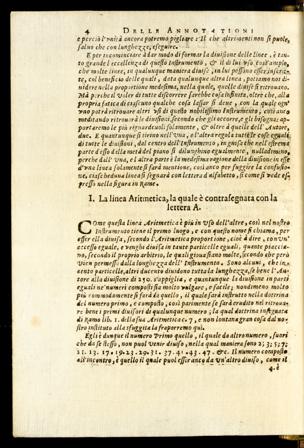 4 DELLE ANNOTATIONI
e perciò l'vnità ancora potremo pigliare: Il che altrimenti non si puole,
saluo che con lunghezze, seguire.
E per incominciare à dar modo di formar la diuisione delle linee, è tan-
to grande l'eccellenza di questo Instrumento,
che molte linee, in qualunque maniera diuise, in lui possono esser inserte,
ma à perche il voler di tutte discorrere sarebbe cosa infinita, oltre che, alla
propria fatica di ciascuno qualche cosa lassar si deue, con la quale ogn'
vno potrà ritrouare altri vsi di questo nobilissimo Instrumento,
meditando ritrouarà le diuisioni, secondo che gli occorre, e gli bisogna: ap-
portaremo le più riguardeuoli solamente, & oltre à quelle dell'Autore,
due. E quantunque si truoui nell'vna, e l'altra regola
di tutte le diuisioni, del centro dell'Instrumento,
perche dall'vna, e l'altra parte la medesima ragione della diuisione in esse
d'vna linea solamente si farà mentione, così anco per fuggire la confusio-
ne, ciascheduna linea si segnarà con lettera d'alfabetto, sì come si vede es-
presso nella figura in Rame.
I. La linea Aritmetica, la quale è contrasegnata con la
lettera A.
Come questa linea Aritmetica è più in vso dell'altre, così nel nostro
Instrumento tiene il primo luogo, e con questo nome si chiama, per
esser ella diuisa, secondo l'Aritmetica proportione, cioè à dire, con vn'ec-
cesso eguale, e venghi diuisa in tante particelle eguali, quante piaccia-
no, secondo il proprio arbitrio, le quali possano
vien permesso dalla lunghezza dell'Instrumento. Sono alcuni, che in
cento particelle, altri ducento diuidono tutta la lunghezza,
tore alla diuisione di 250. s'appiglia, e quantunque la diuisione in parti
eguali ne' numeri composti sia molto vulgare, e facile; nondimeno molto
più commodamente si farà da quello, il quale sarà instrutto nella dottrina
del numero primo, e composto, così parimente se sarà erudito nel ritroua-
re bene i primi diuisori di qualunque numero; la qual dottrina insegnare
da Ramo lib. 1. della sua Aritmetica c. 7, e non lontana gran cosa dal no-
stro instituto alla sfuggita la frapporremo quì.
Egli è dunque il numero Primo quello, il quale da altro numero, fuori
che da se stesso, non può venir diuiso, nella qual maniera sono 2; 3; 5; 7;
11. 13. 17. 19. 23. 29. 31. 37. 41. 43. 47. &c. Il numero composto
all'incontro, è quello il quale può esser anco da vn'altro diuiso, come il
4. è